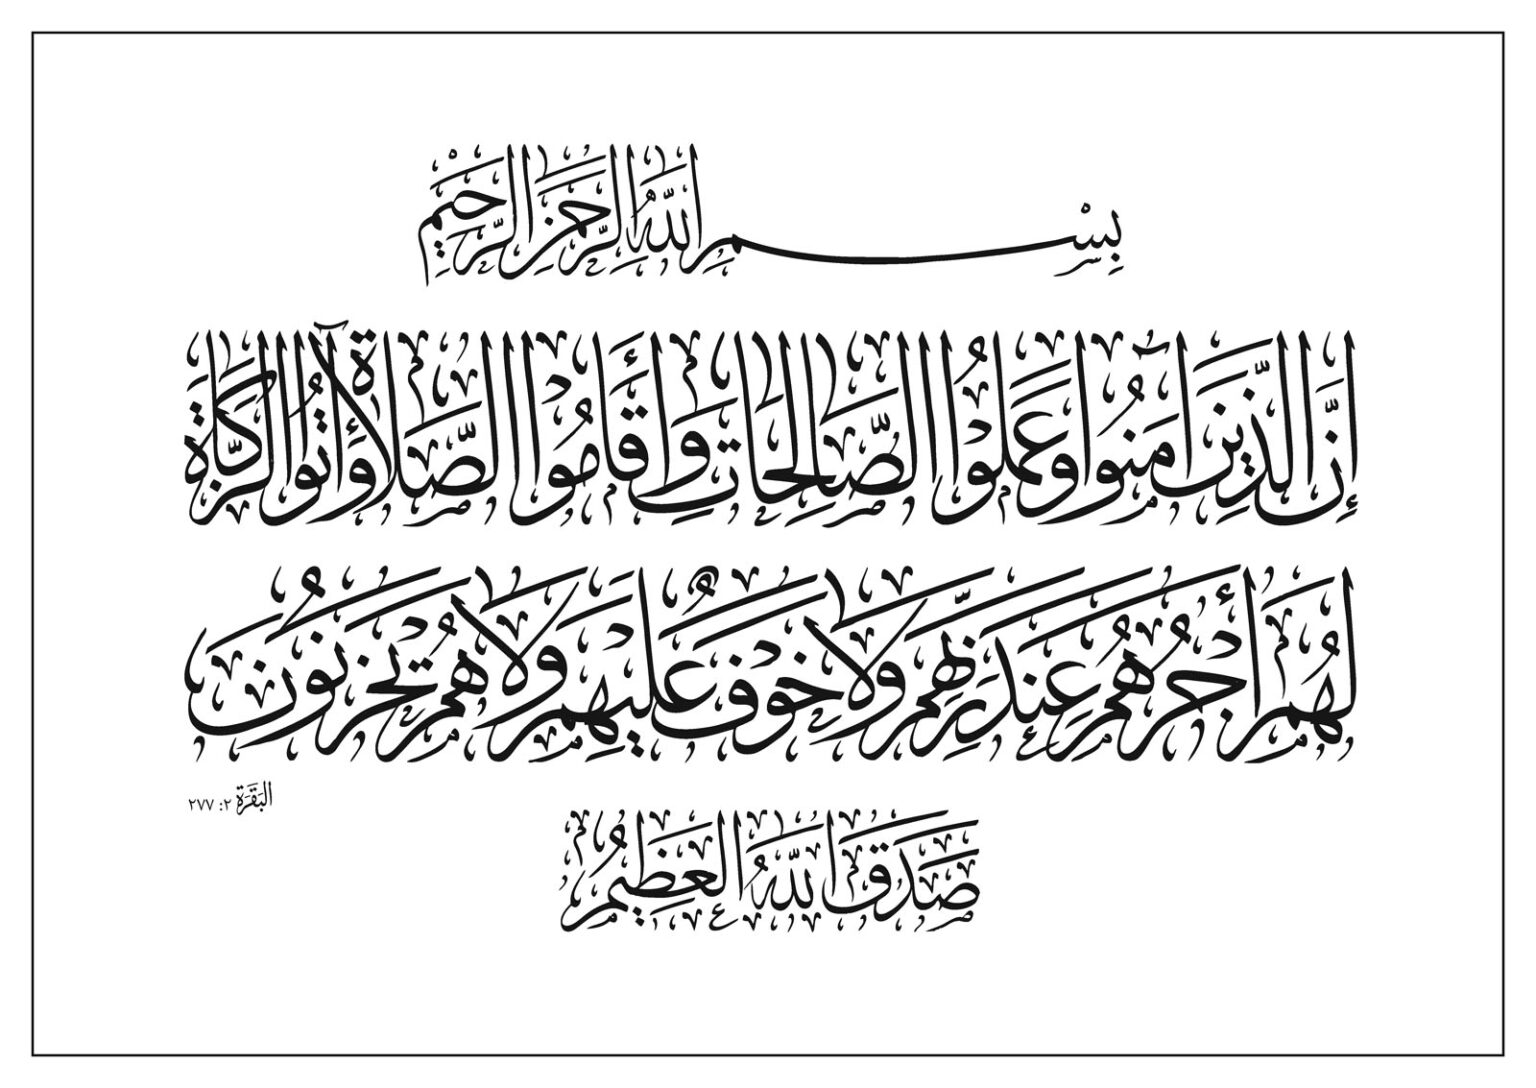 بِسْمِ اللَّهِ الرَّحْمَنِ الرَّحِيمِ
إِنَّ الَّذِينَ آمَنُوا وَعَمِلُوا الصَّالِحَاتِ وَأَقَامُوا الصَّلَاةَ وَآتَوُا الزَّكَاةَ
لَهُمْ أَجْرُهُمْ عِنْدَ رَبِّهِمْ وَلَا خَوْفٌ عَلَيْهِمْ وَلَا هُمْ يَحْزَنُونَ
البَقَرَة ٢: ٢٧٧
صَدَقَ اللَّهُ العَظِيمُ